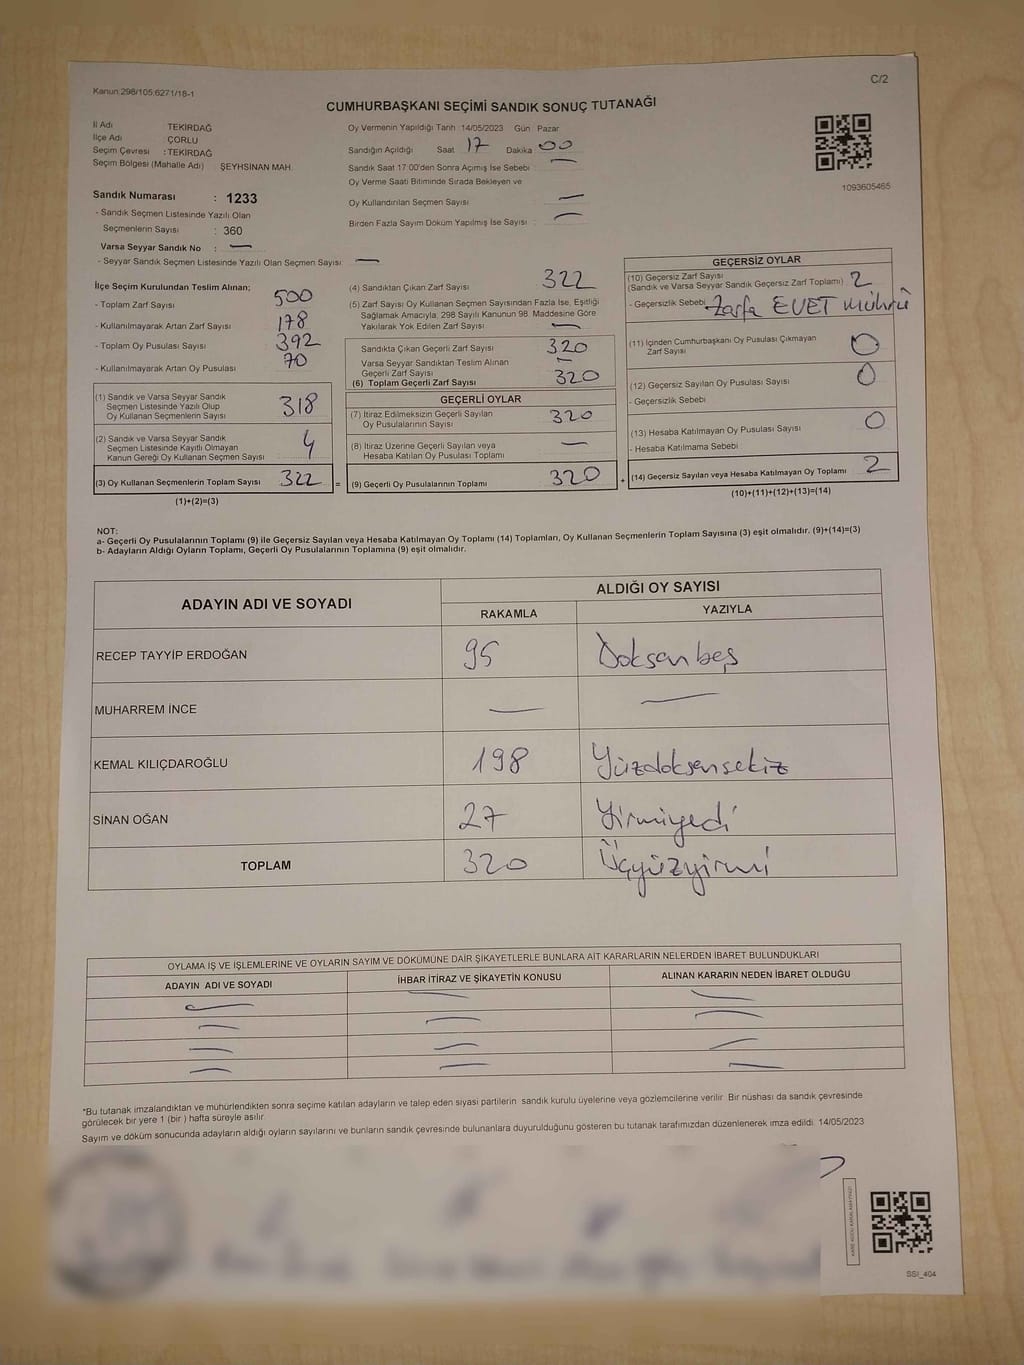 C/2
Kanun:298/105,6271/18-1
CUMHURBAŞKANI SEÇİMİ SANDIK SONUÇ TUTANAĞI
İl Adı TEKİRDAĞ
İlçe Adı : ÇORLU
Seçim Çevresi : TEKİRDAĞ
Seçim Bölgesi (Mahalle Adı) : ŞEYHSİNAN MAH.
Sandık Numarası : 1233
- Sandık Seçmen Listesinde Yazılı Olan
Seçmenlerin Sayısı : 360
Varsa Seyyar Sandık No : —
- Seyyar Sandık Seçmen Listesinde Yazılı Olan Seçmen Sayısı: —
Oy Vermenin Yapıldığı Tarih :14/05/2023 Gün : Pazar
Sandığın Açıldığı Saat 17 Dakika 00
Sandık Saat 17:00'den Sonra Açımış İse Sebebi : —
Oy Verme Saati Bitiminde Sırada Bekleyen ve
Oy Kullandırılan Seçmen Sayısı : —
Birden Fazla Sayım Döküm Yapılmış İse Sayısı : —
1093605465
İlçe Seçim Kurulundan Teslim Alınan;
- Toplam Zarf Sayısı 500
- Kullanılmayarak Artan Zarf Sayısı 178
- Toplam Oy Pusulası Sayısı 392
- Kullanılmayarak Artan Oy Pusulası 70
(1) Sandık ve Varsa Seyyar Sandık
Seçmen Listesinde Yazılı Olup
Oy Kullanan Seçmenlerin Sayısı 318
(2) Sandık ve Varsa Seyyar Sandık
Seçmen Listesinde Kayıtlı Olmayan
Kanun Gereği Oy Kullanan Seçmen Sayısı 4
(3) Oy Kullanan Seçmenlerin Toplam Sayısı 322 =
(1)+(2)=(3)
(4) Sandıktan Çıkan Zarf Sayısı 322
(5) Zarf Sayısı Oy Kullanan Seçmen Sayısından Fazla İse, Eşitliği
Sağlamak Amacıyla, 298 Sayılı Kanunun 98. Maddesine Göre
Yakılarak Yok Edilen Zarf Sayısı —
Sandıkta Çıkan Geçerli Zarf Sayısı 320
Varsa Seyyar Sandıktan Teslim Alınan
Geçerli Zarf Sayısı —
(6) Toplam Geçerli Zarf Sayısı 320
GEÇERLİ OYLAR
(7) İtiraz Edilmeksizin Geçerli Sayılan
Oy Pusulalarının Sayısı 320
(8) İtiraz Üzerine Geçerli Sayılan veya
Hesaba Katılan Oy Pusulası Toplamı —
(9) Geçerli Oy Pusulalarının Toplamı 320 +
GEÇERSİZ OYLAR
(10) Geçersiz Zarf Sayısı
(Sandık ve Varsa Seyyar Sandık Geçersiz Zarf Toplamı) 2
- Geçersizlik Sebebi: Zarfa EVET mührü
(11) İçinden Cumhurbaşkanı Oy Pusulası Çıkmayan
Zarf Sayısı 0
(12) Geçersiz Sayılan Oy Pusulası Sayısı 0
- Geçersizlik Sebebi
(13) Hesaba Katılmayan Oy Pusulası Sayısı 0
- Hesaba Katılmama Sebebi
(14) Geçersiz Sayılan veya Hesaba Katılmayan Oy Toplamı 2
(10)+(11)+(12)+(13)=(14)
NOT:
a- Geçerli Oy Pusulalarının Toplamı (9) ile Geçersiz Sayılan veya Hesaba Katılmayan Oy Toplamı (14) Toplamları, Oy Kullanan Seçmenlerin Toplam Sayısına (3) eşit olmalıdır. (9)+(14)=(3)
b- Adayların Aldığı Oyların Toplamı, Geçerli Oy Pusulalarının Toplamına (9) eşit olmalıdır.
ADAYIN ADI VE SOYADI ALDIĞI OY SAYISI
RAKAMLA YAZIYLA
RECEP TAYYİP ERDOĞAN 95 Doksanbeş
MUHARREM İNCE — —
KEMAL KILIÇDAROĞLU 198 Yüzdoksansekiz
SİNAN OĞAN 27 Yirmiyedi
TOPLAM 320 Üçyüzyirmi
OYLAMA İŞ VE İŞLEMLERİNE VE OYLARIN SAYIM VE DÖKÜMÜNE DAİR ŞİKAYETLERLE BUNLARA AİT KARARLARIN NELERDEN İBARET BULUNDUKLARI
ADAYIN ADI VE SOYADI İHBAR İTİRAZ VE ŞİKAYETİN KONUSU ALINAN KARARIN NEDEN İBARET OLDUĞU
— — —
— — —
— — —
— — —
*Bu tutanak imzalandıktan ve mühürlendikten sonra seçime katılan adayların ve talep eden siyasi partilerin sandık kurulu üyelerine veya gözlemcilerine verilir. Bir nüshası da sandık çevresinde
görülecek bir yere 1 (bir ) hafta süreyle asılır.
Sayım ve döküm sonucunda adayların aldığı oyların sayılarını ve bunların sandık çevresinde bulunanlara duyurulduğunu gösteren bu tutanak tarafımızdan düzenlenerek imza edildi. 14/05/2023
SSI_404